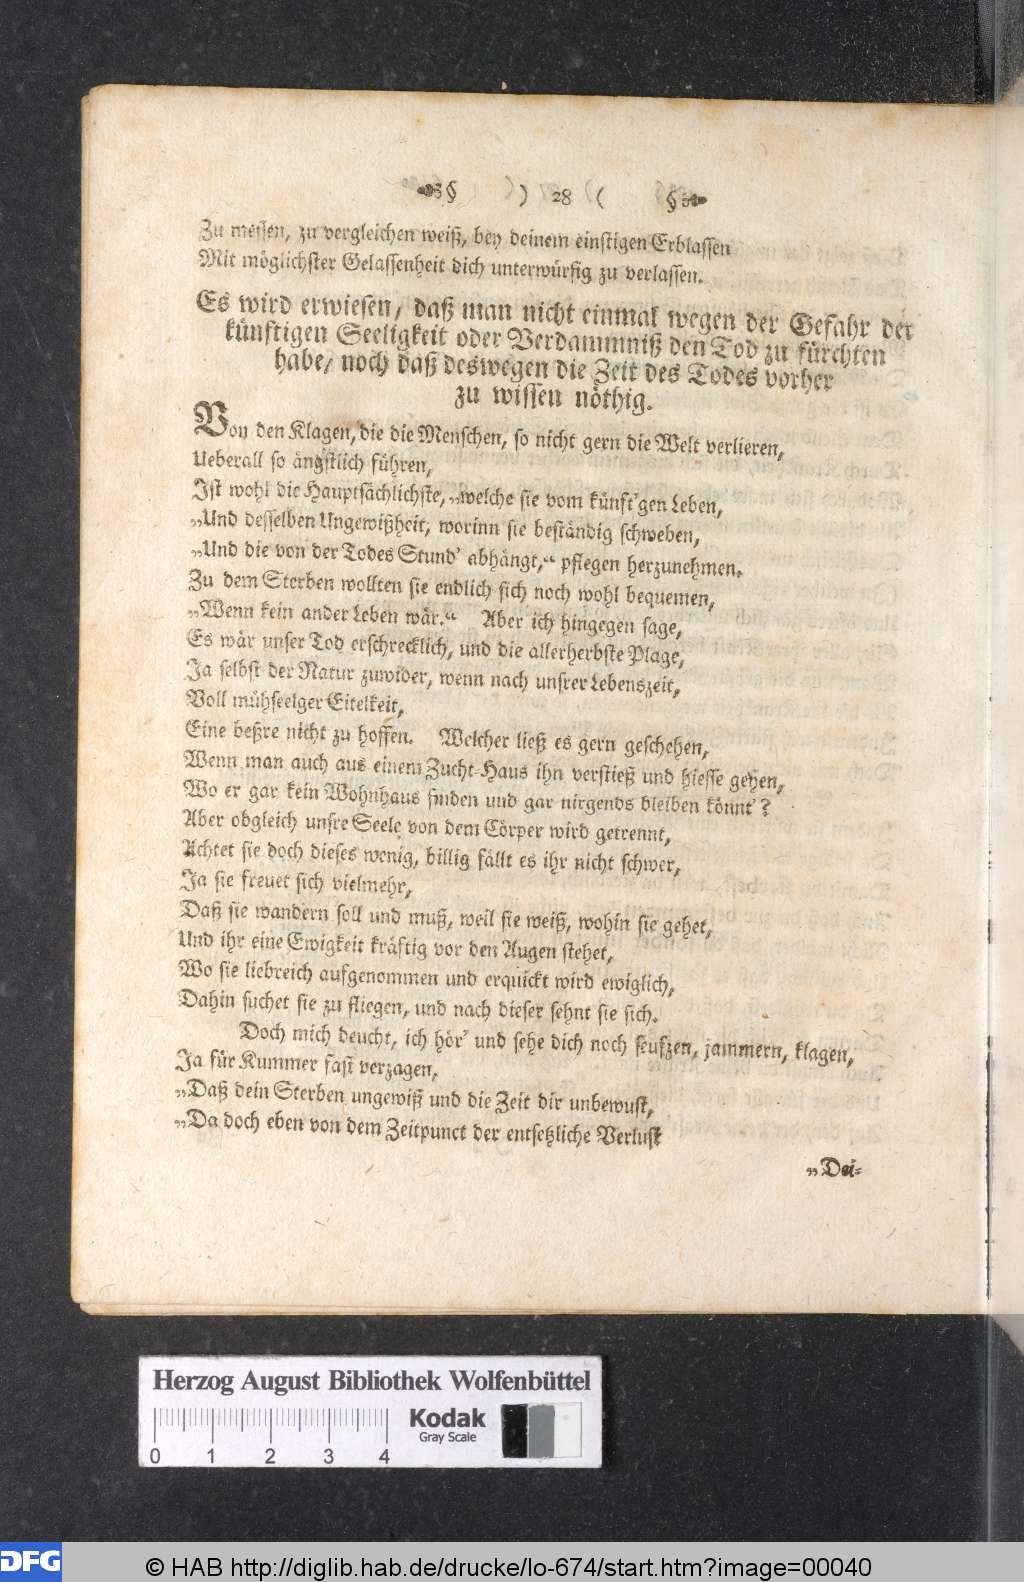 § ) 28 ( §
Zu messen, zu vergleichen weiß, bey deinem einstigen Erblassen
Mit möglichster Gelassenheit dich unterwürfig zu verlassen.
Es wird erwiesen/ daß man nicht einmal wegen der Gefahr der
künftigen Seeligkeit oder Verdammniß den Tod zu fürchten
habe/ noch daß deswegen die Zeit des Todes vorher
zu wissen nöthig.
Von den Klagen, die die Menschen, so nicht gern die Welt verlieren,
Ueberall so ängstlich führen,
Ist wohl die Hauptsächlichste, „welche sie vom künft'gen Leben,
„Und desselben Ungewißheit, worinn sie beständig schweben,
„Und die von der Todes Stund' abhängt,“ pflegen herzunehmen.
Zu dem Sterben wollten sie endlich sich noch wohl bequemen,
„Wenn kein ander Leben wär.“ Aber ich hingegen sage,
Es wär unser Tod erschrecklich, und die allerherbste Plage,
Ja selbst der Natur zuwider, wenn nach unsrer Lebenszeit,
Voll mühseelger Eitelkeit,
Eine beßre nicht zu hoffen. Welcher ließ es gern geschehen,
Wenn man auch aus einem Zucht-Haus ihn verstieß und hiesse gehen,
Wo er gar kein Wohnhaus finden und gar nirgends bleiben könnt'?
Aber obgleich unsre Seele von dem Cörper wird getrennt,
Achtet sie doch dieses wenig, billig fällt es ihr nicht schwer,
Ja sie freuet sich vielmehr,
Daß sie wandern soll und muß, weil sie weiß, wohin sie gehet,
Und ihr eine Ewigkeit kräftig vor den Augen stehet,
Wo sie liebreich aufgenommen und erquickt wird ewiglich,
Dahin suchet sie zu fliegen, und nach dieser sehnt sie sich.
Doch mich deucht, ich hör' und sehe dich noch seufzen, jammern, klagen,
Ja für Kummer fast verzagen,
„Daß dein Sterben ungewiß und die Zeit dir unbewust,
„Da doch eben von dem Zeitpunct der entsetzliche Verlust
„Dei-
Herzog August Bibliothek Wolfenbüttel
Kodak
Gray Scale
0 1 2 3 4
DFG © HAB http://diglib.hab.de/drucke/lo-674/start.htm?image=00040